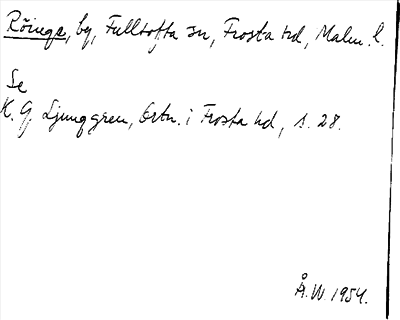 Röinge, by, Fulltofta sn, Frosta hd, Malm. l.
Se
K. G. Ljunggren, Ortn. i Frosta hd, s. 28.
Å.W. 1954.